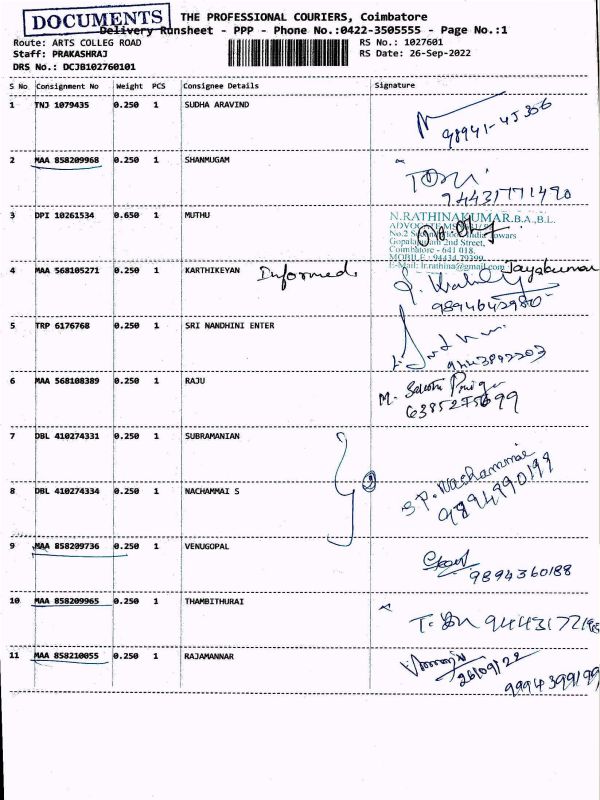 DOCUMENTS
THE PROFESSIONAL COURIERS, Coimbatore
Delivery Runsheet - PPP - Phone No.:0422-3505555 - Page No.:1
Route: ARTS COLLEG ROAD RS No.: 1027601
Staff: PRAKASHRAJ RS Date: 26-Sep-2022
DRS No.: DCJB102760101
S No Consignment No Weight PCS Consignee Details Signature
1 TNJ 1079435 0.250 1 SUDHA ARAVIND
98941-45356
2 MAA 858209968 0.250 1 SHANMUGAM
94431771490
3 DPI 10261534 0.650 1 MUTHU
N.RATHINAKUMAR.B.A.,B.L.
ADVOCATE
2nd Street,
Coimbatore - 641 018.
MOBILE: 94434 79399
E-Mail: lr.rathina@gmail.com
4 MAA 568105271 0.250 1 KARTHIKEYAN Informed. Jayakumar
9894642980
5 TRP 6176768 0.250 1 SRI NANDHINI ENTER
6 MAA 568108389 0.250 1 RAJU
M.
6385275699
7 DBL 410274331 0.250 1 SUBRAMANIAN
8 DBL 410274334 0.250 1 NACHAMMAI S
S P. Nachammai
9894990199
9 MAA 858209736 0.250 1 VENUGOPAL
9894360188
10 MAA 858209965 0.250 1 THAMBITHURAI
11 MAA 858210055 0.250 1 RAJAMANNAR
26/09/22
9994399199